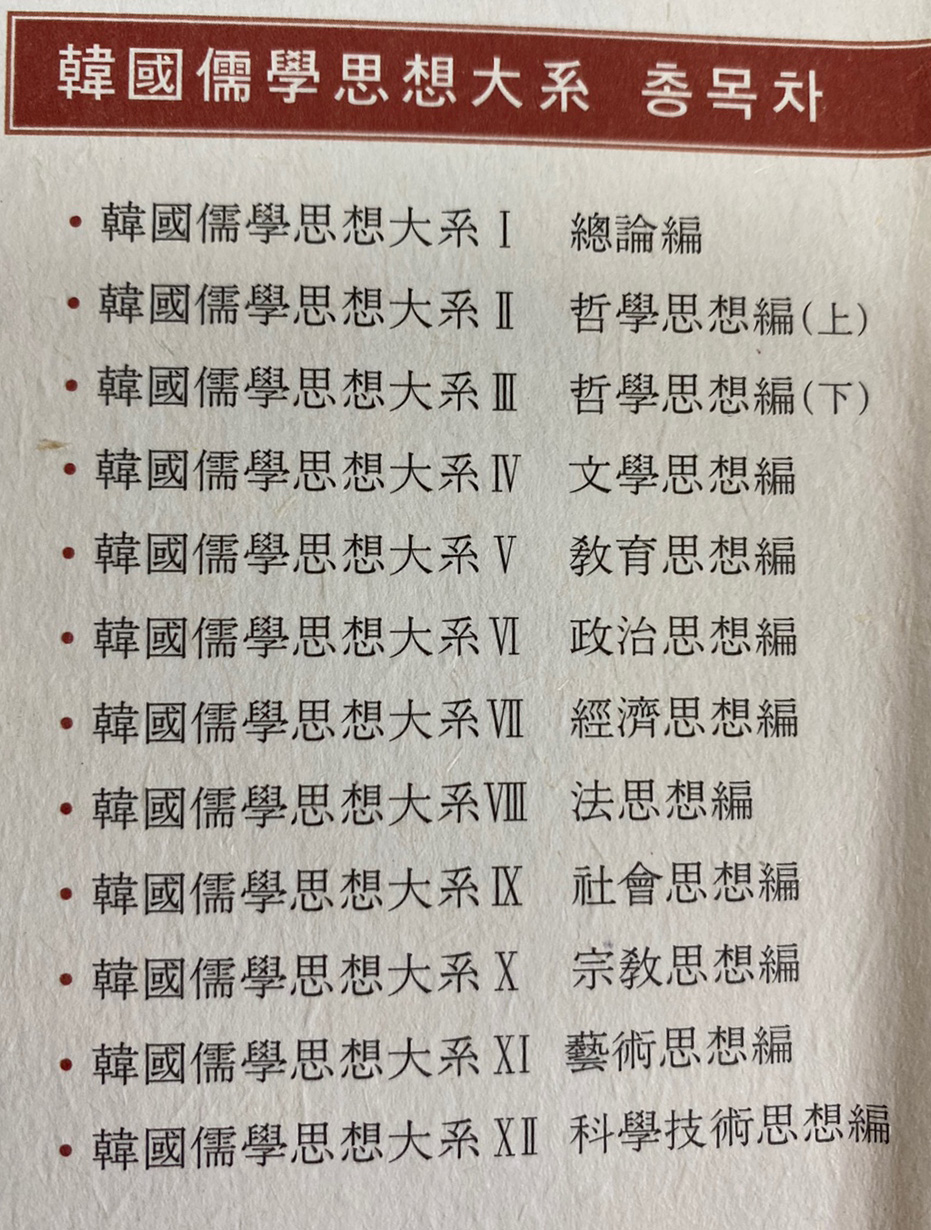 韓國儒學思想大系 총목차
• 韓國儒學思想大系 Ⅰ 總論編
• 韓國儒學思想大系 Ⅱ 哲學思想編(上)
• 韓國儒學思想大系 Ⅲ 哲學思想編(下)
• 韓國儒學思想大系 Ⅳ 文學思想編
• 韓國儒學思想大系 Ⅴ 敎育思想編
• 韓國儒學思想大系 Ⅵ 政治思想編
• 韓國儒學思想大系 Ⅶ 經濟思想編
• 韓國儒學思想大系 Ⅷ 法思想編
• 韓國儒學思想大系 Ⅸ 社會思想編
• 韓國儒學思想大系 Ⅹ 宗敎思想編
• 韓國儒學思想大系 Ⅺ 藝術思想編
• 韓國儒學思想大系 Ⅻ 科學技術思想編